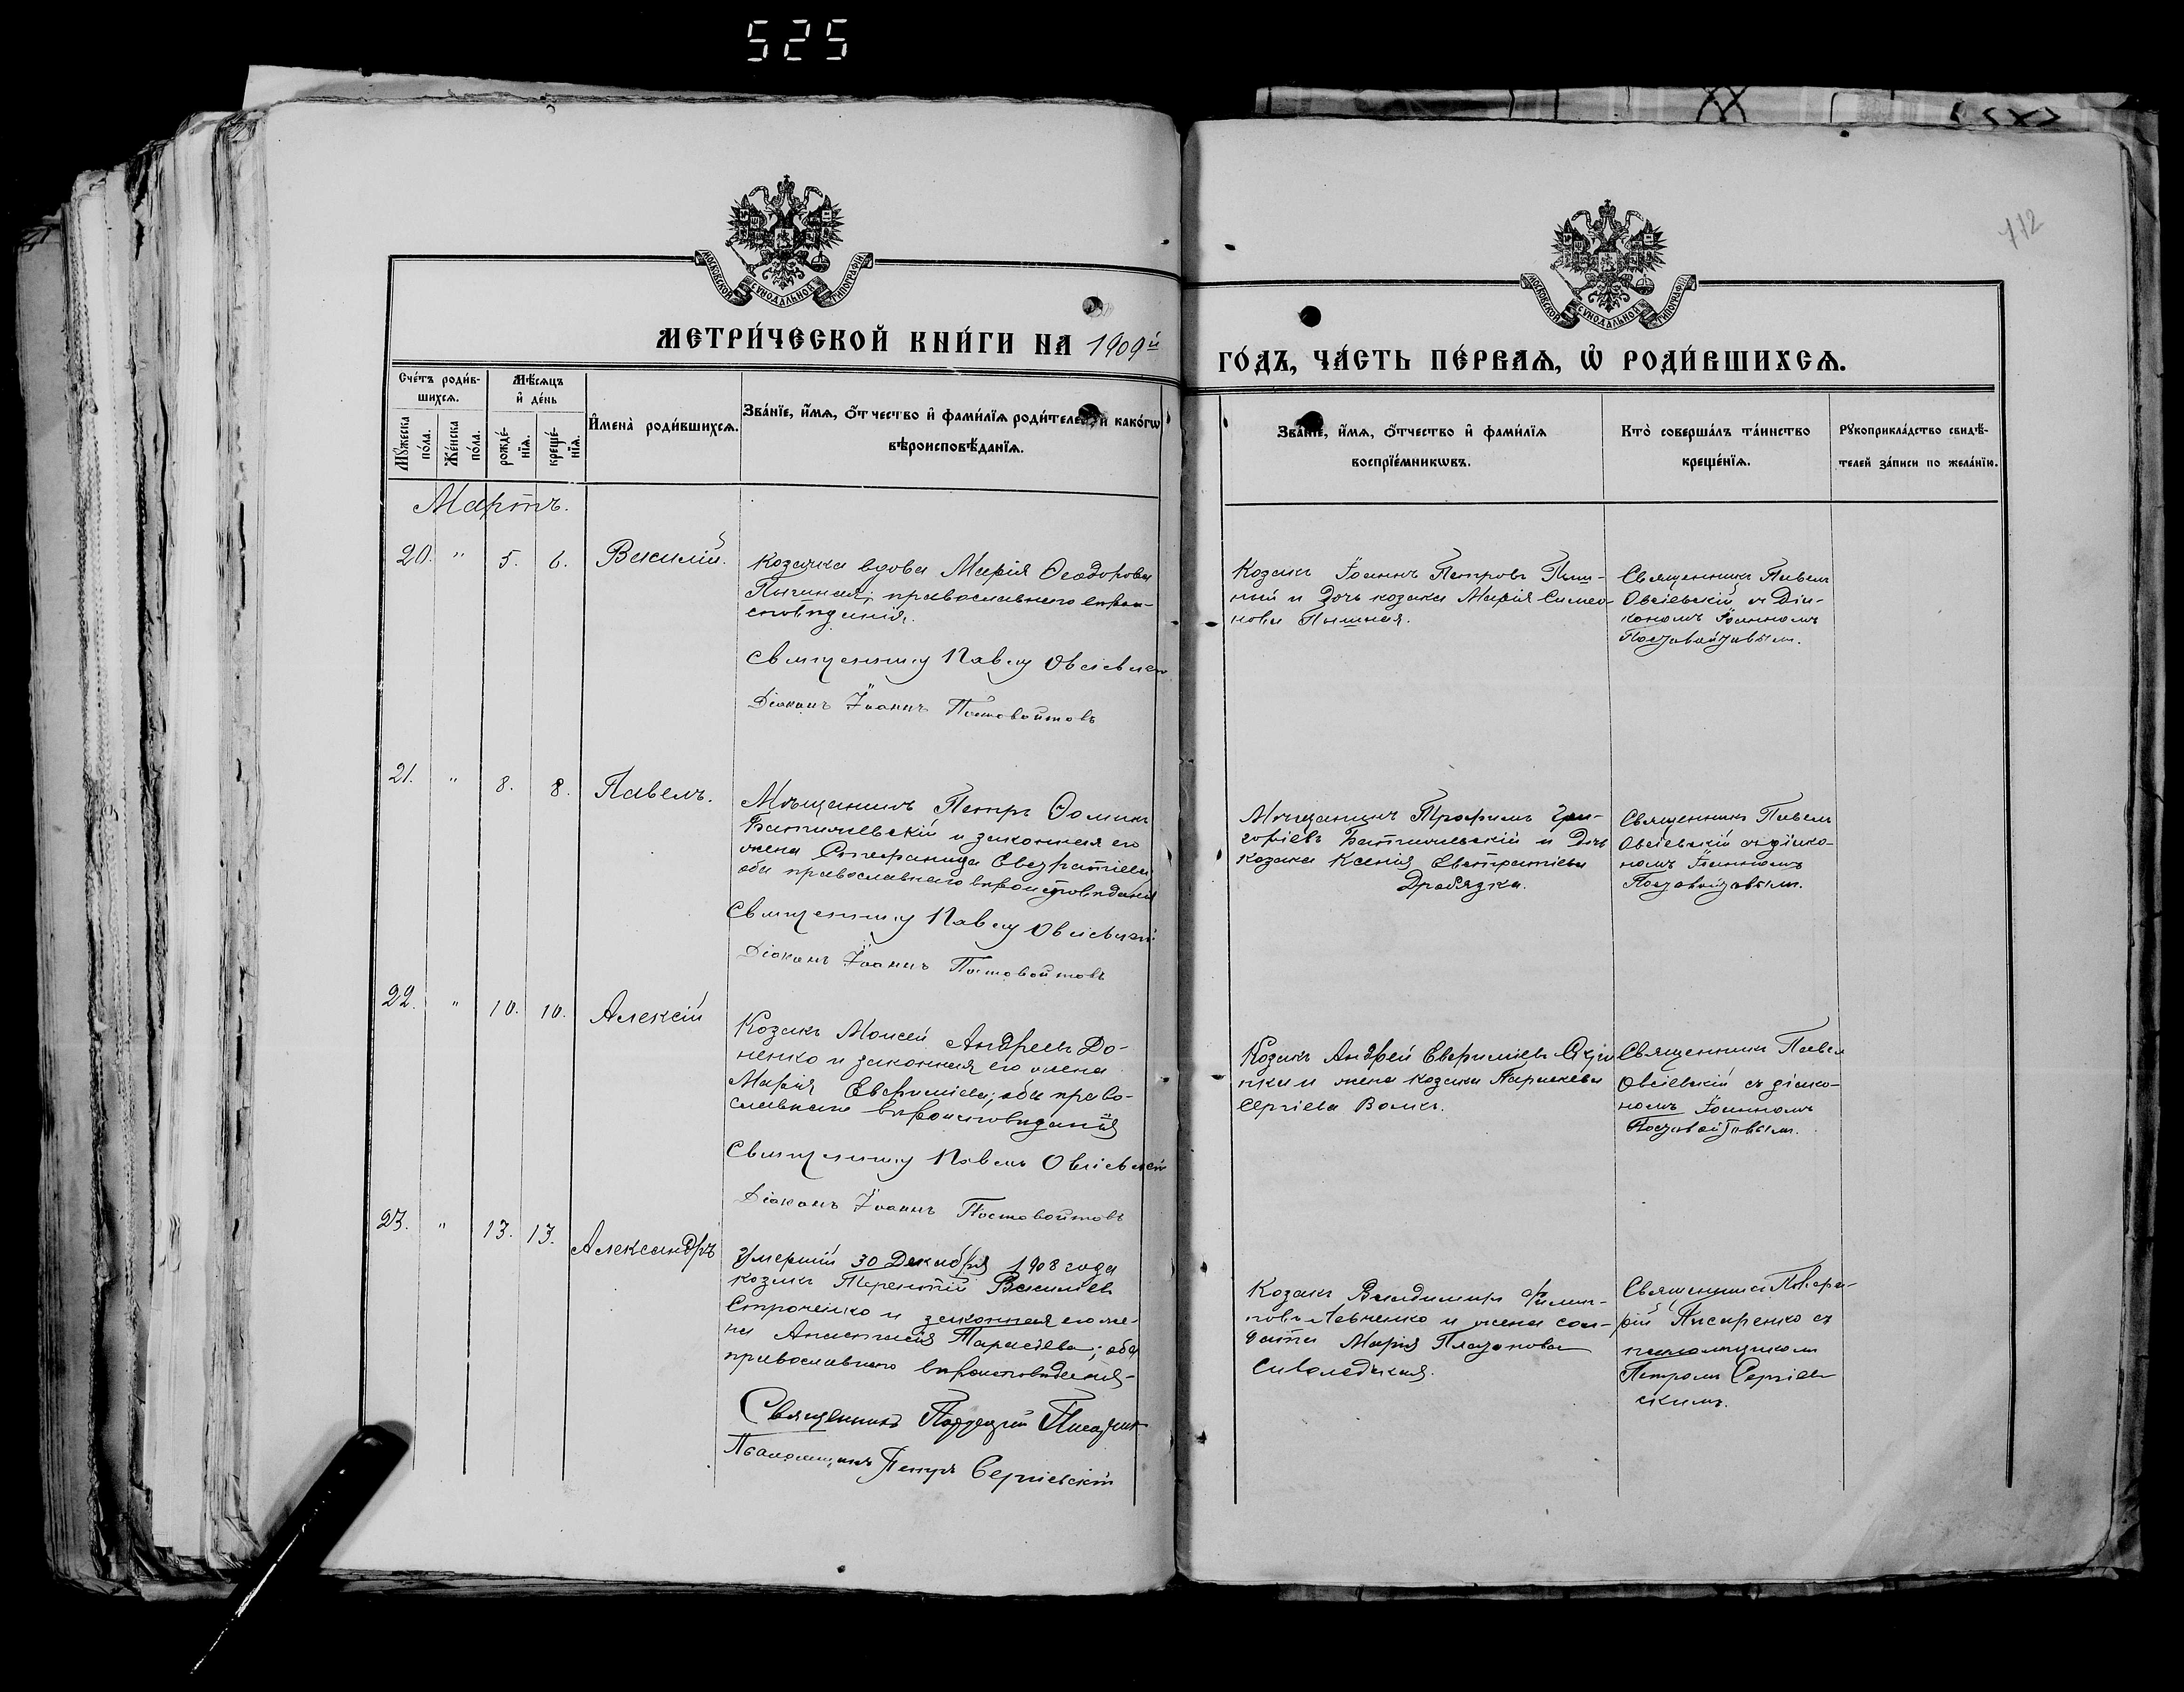 525
112
МОСКОВСКОЙ СѴНОДАЛЬНОЙ ТИПОГРАФІИ
МОСКОВСКОЙ СѴНОДАЛЬНОЙ ТИПОГРАФІИ
МЕТРИ́ЧЕСКОЙ КНИ́ГИ НА 1909й
ГО́ДЪ, ЧА́СТЬ ПЕ́РВАѦ, Ѡ҆ РОДИ́ВШИХСѦ.
Сче́тъ роди́в-
шихсѧ.
Мꙋ́жеска по́ла.
Же́нска по́ла.
Мѣ́сѧцъ
и҆ де́нь
рожде́-
нїѧ.
креще́-
нїѧ.
И҆мена̀ роди́вшихсѧ.
Зва́нїе, и҆́мѧ, ѻ҆́тчество и҆ фами́лїѧ роди́телей и҆ како́гѡ
вѣроисповѣ́данїѧ.
Зва́нїе, и҆́мѧ, ѻ҆́тчество и҆ фами́лїѧ
воспрїе́мникѡвъ.
Кто̀ соверша́лъ та́инство
креще́нїѧ.
Рꙋкоприкла́дство свидѣ́-
телей за́писи по жела́нїю.
Мартъ.
20. " 5. 6. Василій.
Козачка вдова Марія Ѳеодорова
православнаго вѣрои-
сповѣданія.
Священникъ Павелъ Овсіевскій
Діаконъ Іоаннъ Постовойтовъ
Козакъ Іоаннъ Петровъ Пыш-
ный и дочь козака Марія Симео-
нова Пышная.
Священникъ Павелъ
Овсіевскій съ Діа-
кономъ Іоанномъ
Постовойтовымъ.
21. " 8. 8. Павелъ.
Мѣщанинъ Петръ Ѳоминъ
Батичевскій и законная его
жена Стефанида Евстратіева
оба православнаго вѣроисповѣданія
Священникъ Павелъ Овсіевскій
Діаконъ Іоаннъ Постовойтовъ
Мѣщанинъ Трофимъ Гри-
горіевъ Батичевскій и Дочь
козака Ксенія Евстратіева
Дробязка.
Священникъ Павелъ
Овсіевскій съ діако-
номъ Іоанномъ
Постовойтовымъ.
22. " 10. 10. Алексій
Козакъ Моисей Андреевъ До-
ненко и законная его жена
Марія Евфиміева; оба право-
славнаго вѣроисповѣданія
Священникъ Павелъ Овсіевскій
Діаконъ Іоаннъ Постовойтовъ
Козакъ Андрей Евфиміевъ
и жена козака Параскева
Сергіева Волкъ.
Священникъ Павелъ
Овсіевскій съ діако-
номъ Іоанномъ
Постовойтовымъ.
23. " 13. 13. Александръ
Умершій 30 Декабря 1908 года
козакъ Терентій Василіевъ
Строченко и законная его же-
на Анастасія Тарасіева; оба
православнаго вѣроисповѣданія
Священникъ Писаренко
Псаломщикъ Петръ Сергіевскій
Козакъ Владимиръ Филип-
повъ Левченко и жена сол-
дата Марія Платонова
Священникъ
Писаренко съ
псаломщикомъ
Петромъ Сергіев-
скимъ.